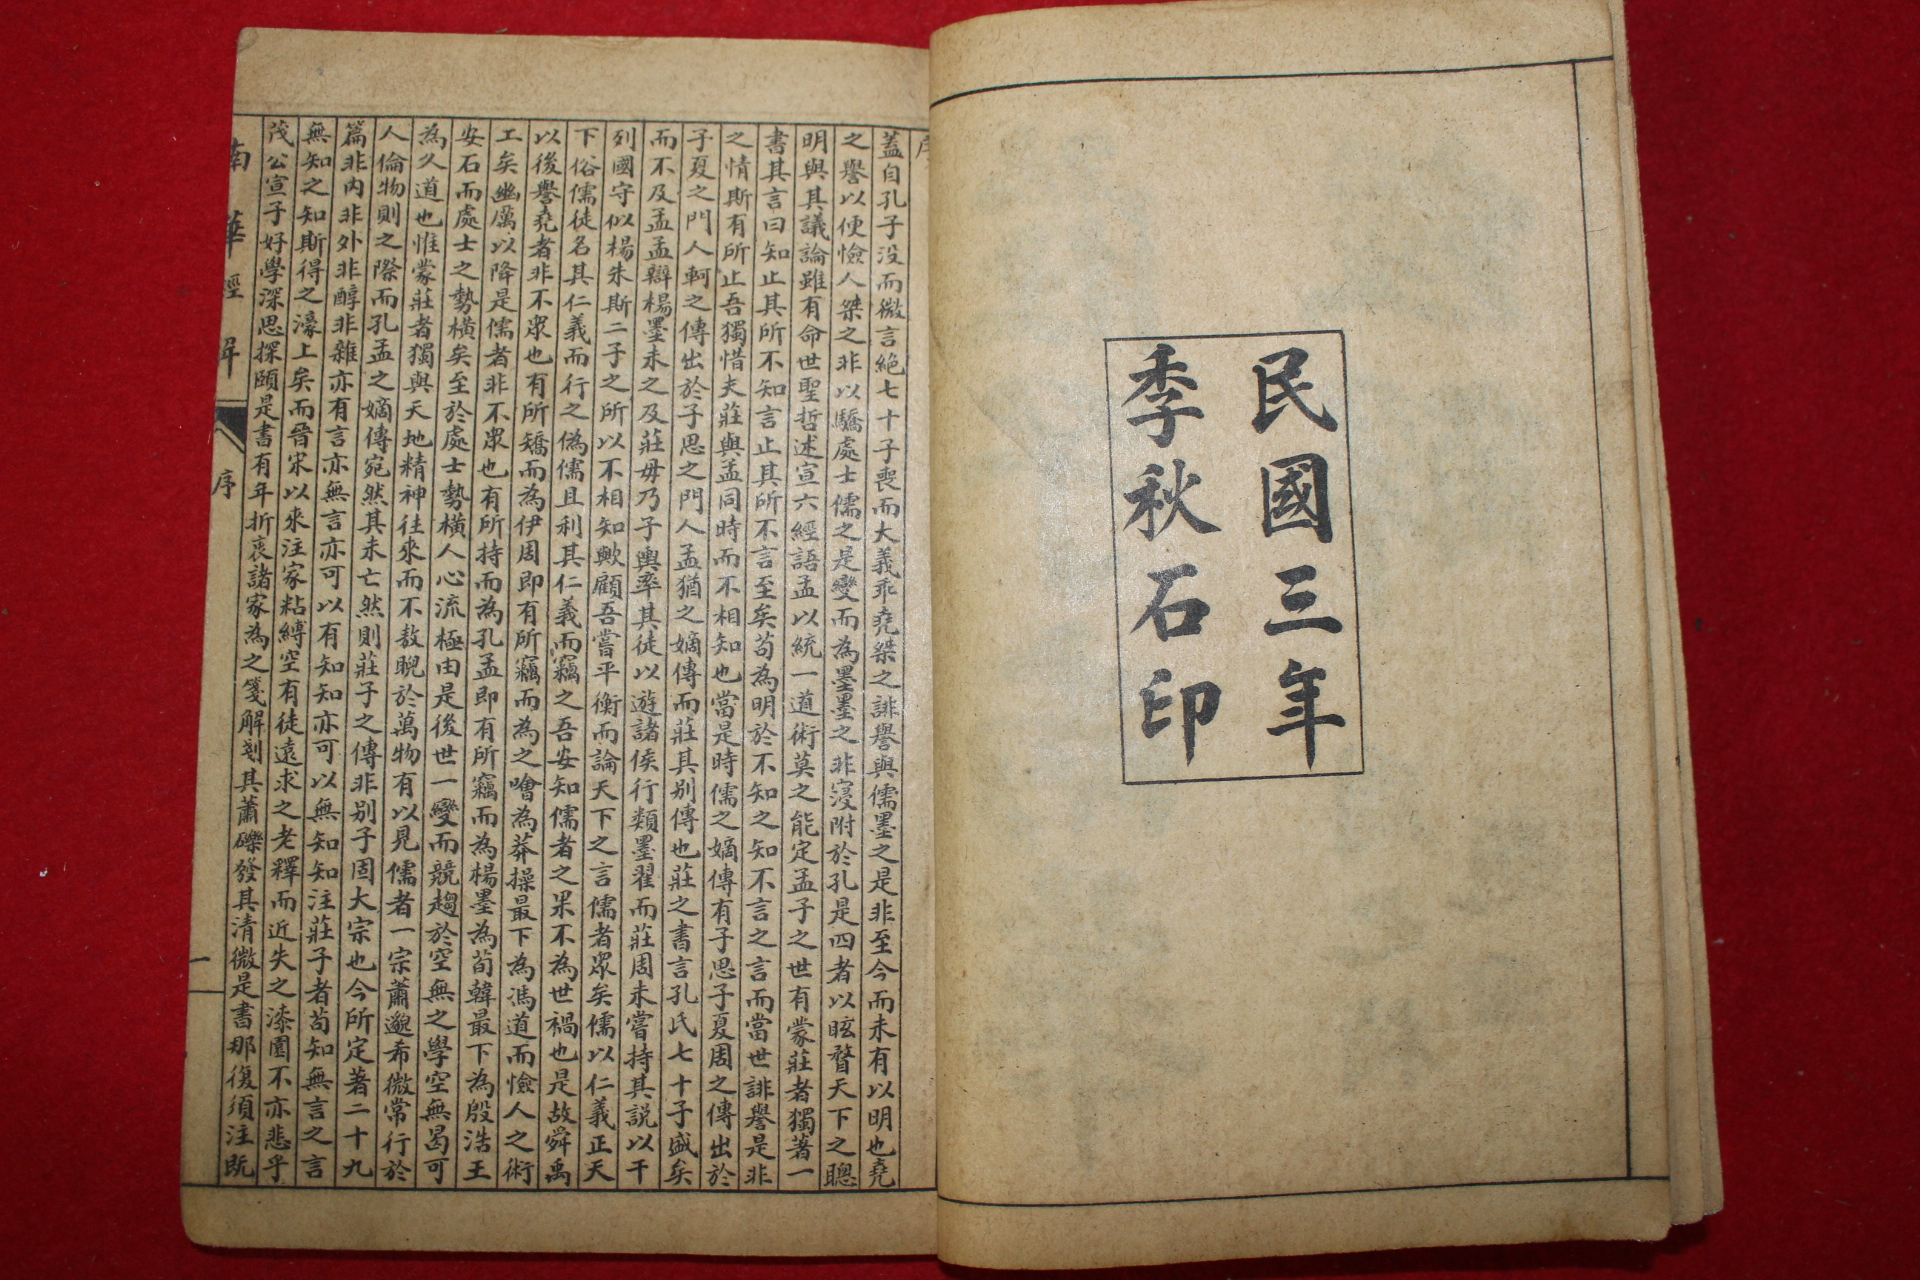 民國三年
季秋石印
序
蓋自孔子没而微言絶七十子喪而大義乖堯桀之誹譽與儒墨之是非至今而未有以明也堯
之譽以便憸人桀之非以驕處士儒之是變而為墨墨之非寖附於孔是四者以眩瞀天下之聰
明與其議論雖有命世聖哲述宣六經語孟以統一道術莫之能定孟子之世有蒙莊者獨著一
書其言曰知止其所不知言止其所不言至矣苟為明於不知之知不言之言而當世誹譽是非
之情斯有所止吾獨惜夫莊與孟同時而不相知也當是時儒之嫡傳有子思子夏周之傳出於
子夏之門人軻之傳出於子思之門人孟猶之嫡傳而莊其別傳也莊之書言孔氏七十子盛矣
而不及孟孟辯楊墨未之及莊毋乃子輿率其徒以遊諸侯行類墨翟而莊周未嘗持其説以干
列國守似楊朱斯二子之所以不相知歟顧吾嘗平衡而論天下之言儒者眾矣儒以仁義正天
下俗儒徒名其仁義而行之偽儒且利其仁義而竊之吾安知儒者之果不為世禍也是故舜禹
以後譽堯者非不眾也有所矯而為伊周即有所竊而為之噲為莽操最下為馮道而憸人之術
工矣幽厲以降是儒者非不眾也有所持而為孔孟即有所竊而為楊墨為荀韓最下為殷浩王
安石而處士之勢橫矣至於處士勢橫人心流極由是後世一變而競趨於空無之學空無曷可
為久道也惟蒙莊者獨與天地精神往來而不敖睨於萬物有以見儒者一宗蕭邈希微常行於
人倫物則之際而孔孟之嫡傳宛然其未亡然則莊子之傳非別子固大宗也今所定著二十九
篇非內非外非醇非雜亦有言亦無言亦可以有知知亦可以無知知注莊子者苟知無言之言
無知之知斯得之濠上矣而晉宋以來注家粘縛空有徒遠求之老釋而近失之漆園不亦悲乎
茂公宣子好學深思探賾是書有年折衷諸家為之箋解剗其蕭礫發其清微是書那復須注既
南華經解
序
一